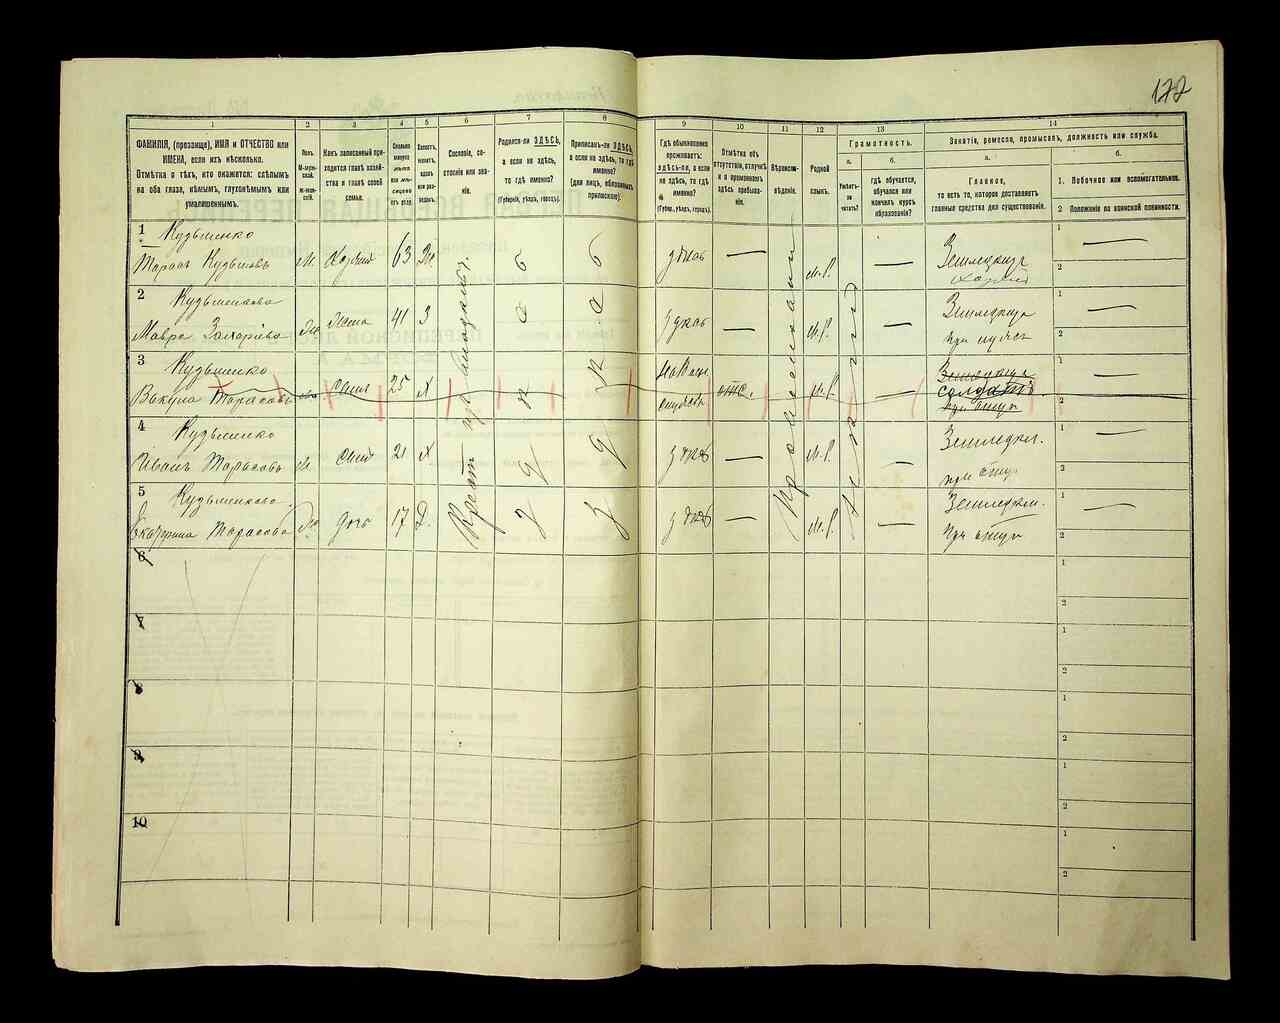 122
1
2
3
4
5
6
7
8
9
10
11
12
13
14
ФАМИЛІЯ, (прозвище), ИМЯ и ОТЧЕСТВО или
ИМЕНА, если ихъ нѣсколько.
Отмѣтка о тѣхъ, кто окажется: слѣпымъ
на оба глаза, нѣмымъ, глухонѣмымъ или
умалишеннымъ.
Полъ.
М-мужской.
Ж-женскій.
Какъ записанный приходится
главѣ хозяйства и главѣ своей
семьи.
Сколько минуло лѣтъ или мѣсяцевъ отъ роду.
Холостъ, женатъ, вдовъ или разведенъ.
Сословіе, состояніе или званіе.
Родился-ли ЗДѢСЬ,
а если не здѣсь,
то гдѣ именно?
(Губернія, уѣздъ, городъ).
Приписанъ-ли ЗДѢСЬ,
а если не здѣсь, то гдѣ
именно?
(для лицъ, обязанныхъ
припискою).
Гдѣ обыкновенно
проживаетъ:
здѣсь-ли, а если
не здѣсь, то гдѣ
именно?
(Губер., уѣздъ, городъ).
Отмѣтка объ
отсутствіи, отлучкѣ
и о временномъ
здѣсь пребываніи.
Вѣроисповѣданіе.
Родной
языкъ.
Грамотность.
а.
Умѣетъ-ли
читать?
б.
гдѣ обучается,
обучался или
кончилъ курсъ
образованія?
Занятіе, ремесло, промыселъ, должность или служба.
а.
Главное,
то есть то, которое доставляетъ
главныя средства для существованія.
б.
1. Побочное или вспомогательное.
2 Положеніе по воинской повинности.
1 Кузьменко
Тарасъ Кузьмовъ М. Хозяинъ 63 — М.Р. — Земледѣлецъ
хозяинъ
2 Кузьменкова
Мавра Захаріева Жена 41 З — М.Р. — Земледѣлица
при мужѣ
3 Кузьменко
Вакула Тарасовъ Сынъ 25 Х отс. М.Р. — солдатъ
при отцѣ
4 Кузьменко
Иванъ Тарасовъ М. Сынъ 21 Х — М.Р. — Земледѣл.
при отцѣ
5 Кузьменкова
Екатерина Тарасова дочь 17 Д. — М.Р. — Земледѣл.
при отцѣ
6
7
8
9
10